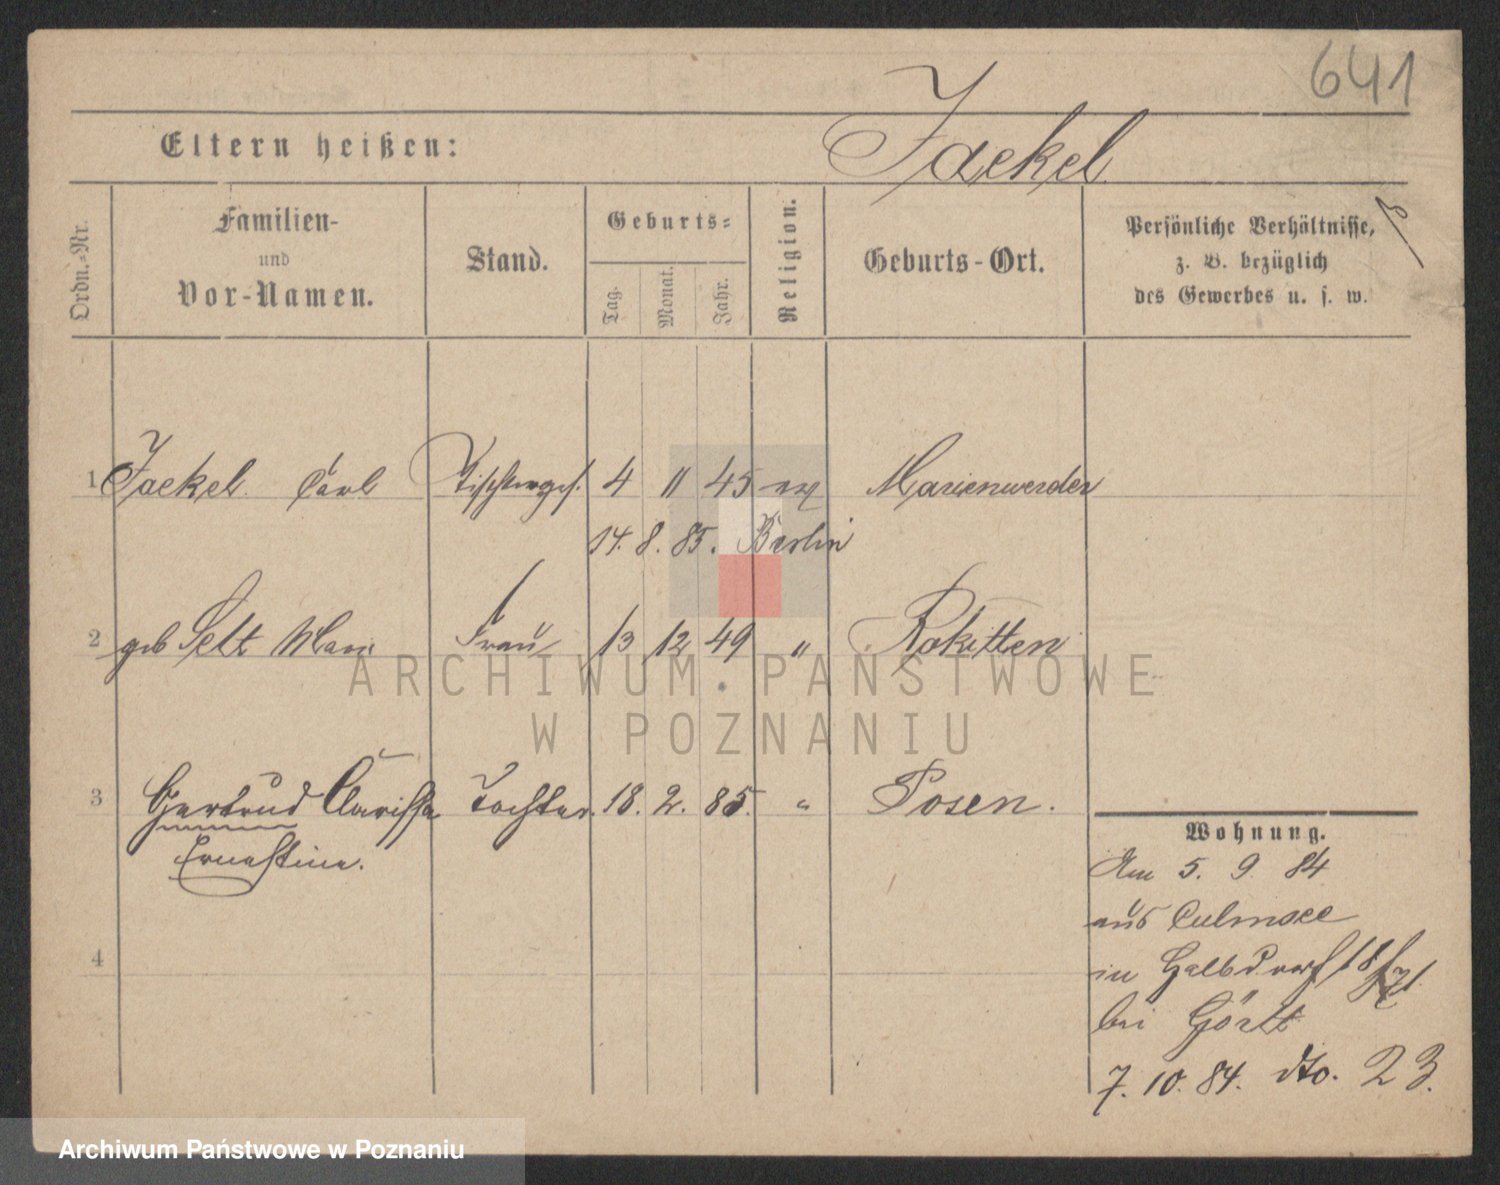 641
Eltern heißen: Jaekel
Ordn.-Nr.
Familien-
und
Vor-Namen.
Stand.
Geburts-
Tag.
Monat.
Jahr.
Religion.
Geburts-Ort.
Persönliche Verhältnisse,
z. B. bezüglich
des Gewerbes u. s. w.
1 Jaekel Carl Tischlerges. 4 11 45 ev Marienwerder
14. 8. 85. Berlin
2 geb Selt Marie Frau 13 12 49 " Rokitten
ARCHIWUM PAŃSTWOWE
W POZNANIU
3 Gertrud Clarissa Tochter. 18. 2. 85. " Posen.
Ernestine.
4
Wohnung.
Am 5. 9 84
aus Culmsee
in Halbdorfst
bei
7. 10. 84. dto. 23.
Archiwum Państwowe w Poznaniu